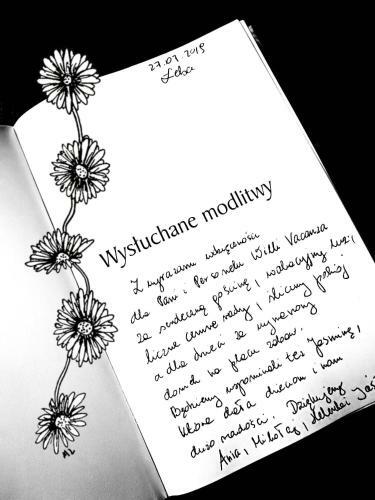 27.07.2019
Łeba
Wysłuchane modlitwy
Z wyrazami wdzięczności
dla Pani i Personelu Willi Vacanza
za serdeczną gościnę, wakacyjny luz,
liczne cenne rady, śliczny pokój
a dla dzieci za wymarzony
domek na placu zabaw.
Będziemy wspominali też Jasminę,
która dała dzieciom i nam
dużo radości. Dziękujemy
Ania, Mikołaj, i Jaś
AL